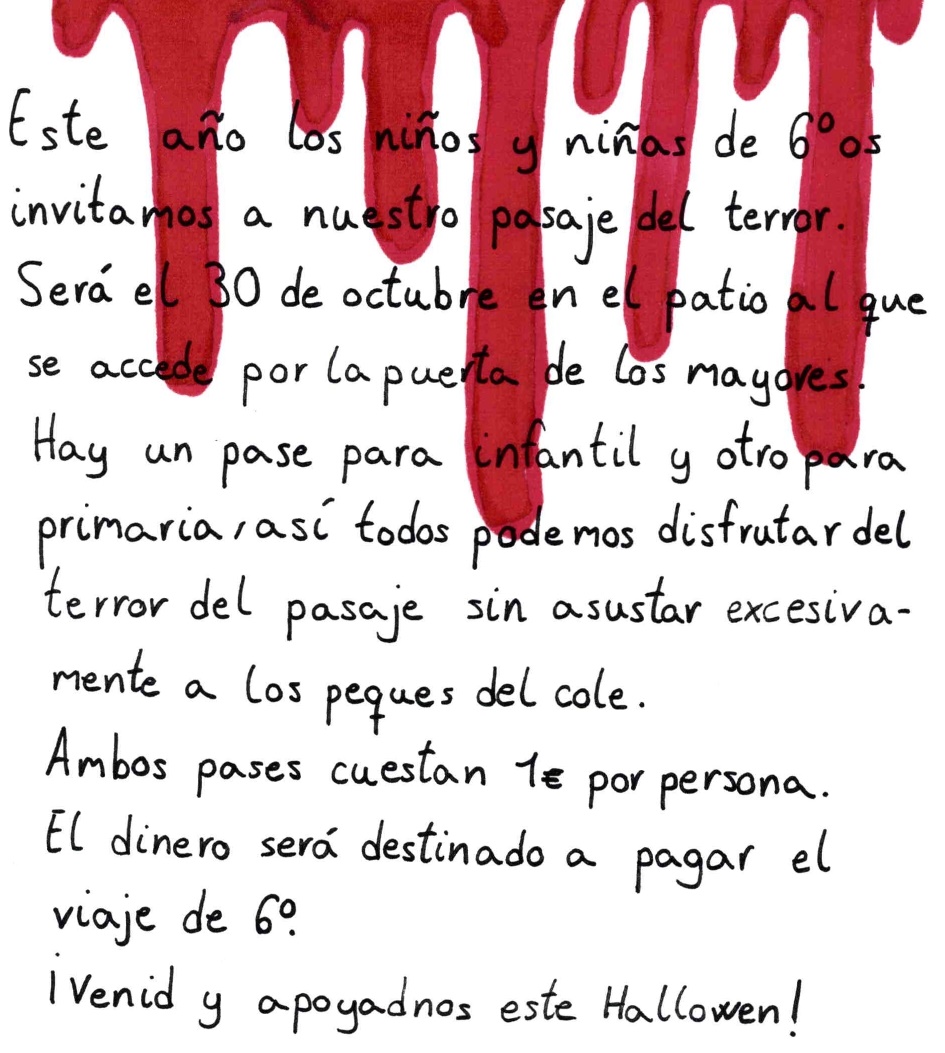 Este año los niños y niñas de 6º os
invitamos a nuestro pasaje del terror.
Será el 30 de octubre en el patio al que
se accede por la puerta de los mayores.
Hay un pase para infantil y otro para
primaria, así todos podemos disfrutar del
terror del pasaje sin asustar excesiva-
mente a los peques del cole.
Ambos pases cuestan 1€ por persona.
El dinero será destinado a pagar el
viaje de 6º.
¡Venid y apoyadnos este Hallowen!